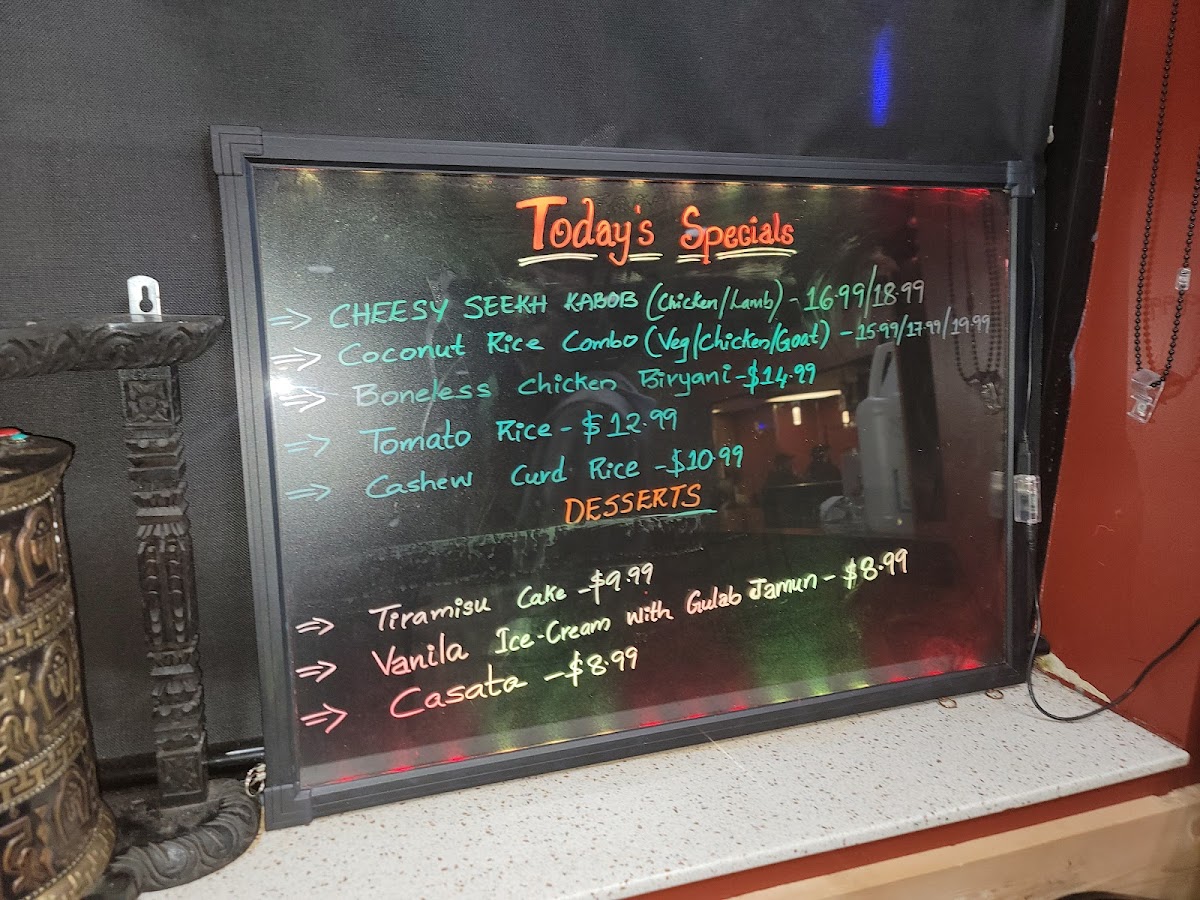 Today's Specials
⇒ CHEESY SEEKH KABOB (Chicken/Lamb) - 16.99/18.99
⇒ Coconut Rice Combo (Veg/Chicken/Goat) - 15.99/17.99/19.99
⇒ Boneless Chicken Biryani - $14.99
⇒ Tomato Rice - $12.99
⇒ Cashew Curd Rice - $10.99
DESSERTS
⇒ Tiramisu Cake - $9.99
⇒ Vanila Ice-Cream with Gulab Jamun - $8.99
⇒ Casata - $8.99